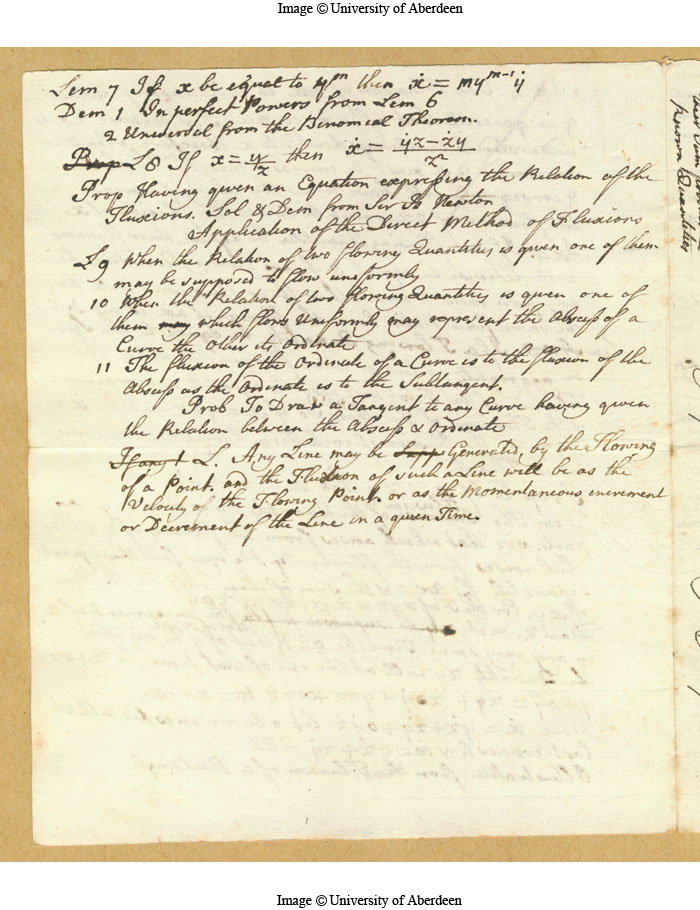 Image © University of Aberdeen
Lem 7 If x be equal to yᵐ then ẋ = myᵐ⁻¹ẏ
Dem 1 In perfect Powers from Lem 6
2 Universal from the Binomial Theorem.
Prop L 8 If x = y/z then ẋ = (ẏz − ży)/z²
Prop Having given an Equation expressing the Relation of the
Fluxions. Sol & Dem from Sir Is Newton
Application of the Direct Method of Fluxions
L 9 When the Relation of two flowing Quantities is given one of them
may be supposed to flow uniformly
10 When the Relation of two flowing Quantities is given one of
them may which flows Uniformly may represent the Absciss of a
Curve the Other its Ordinate
11 The fluxion of the Ordinate of a Curve is to the fluxion of the
Absciss as the Ordinate is to the Subtangent.
Prob To Draw a Tangent to any Curve having given
the Relation between the Absciss & Ordinate
If any L. Any Line may be Supp Generated by the Flowing
of a Point. and the Fluxion of such a Line will be as the
Velocity of the Flowing Point. or as the Momentaneous increment
or Decrement of the Line in a given Time.
known Quantities
Image © University of Aberdeen